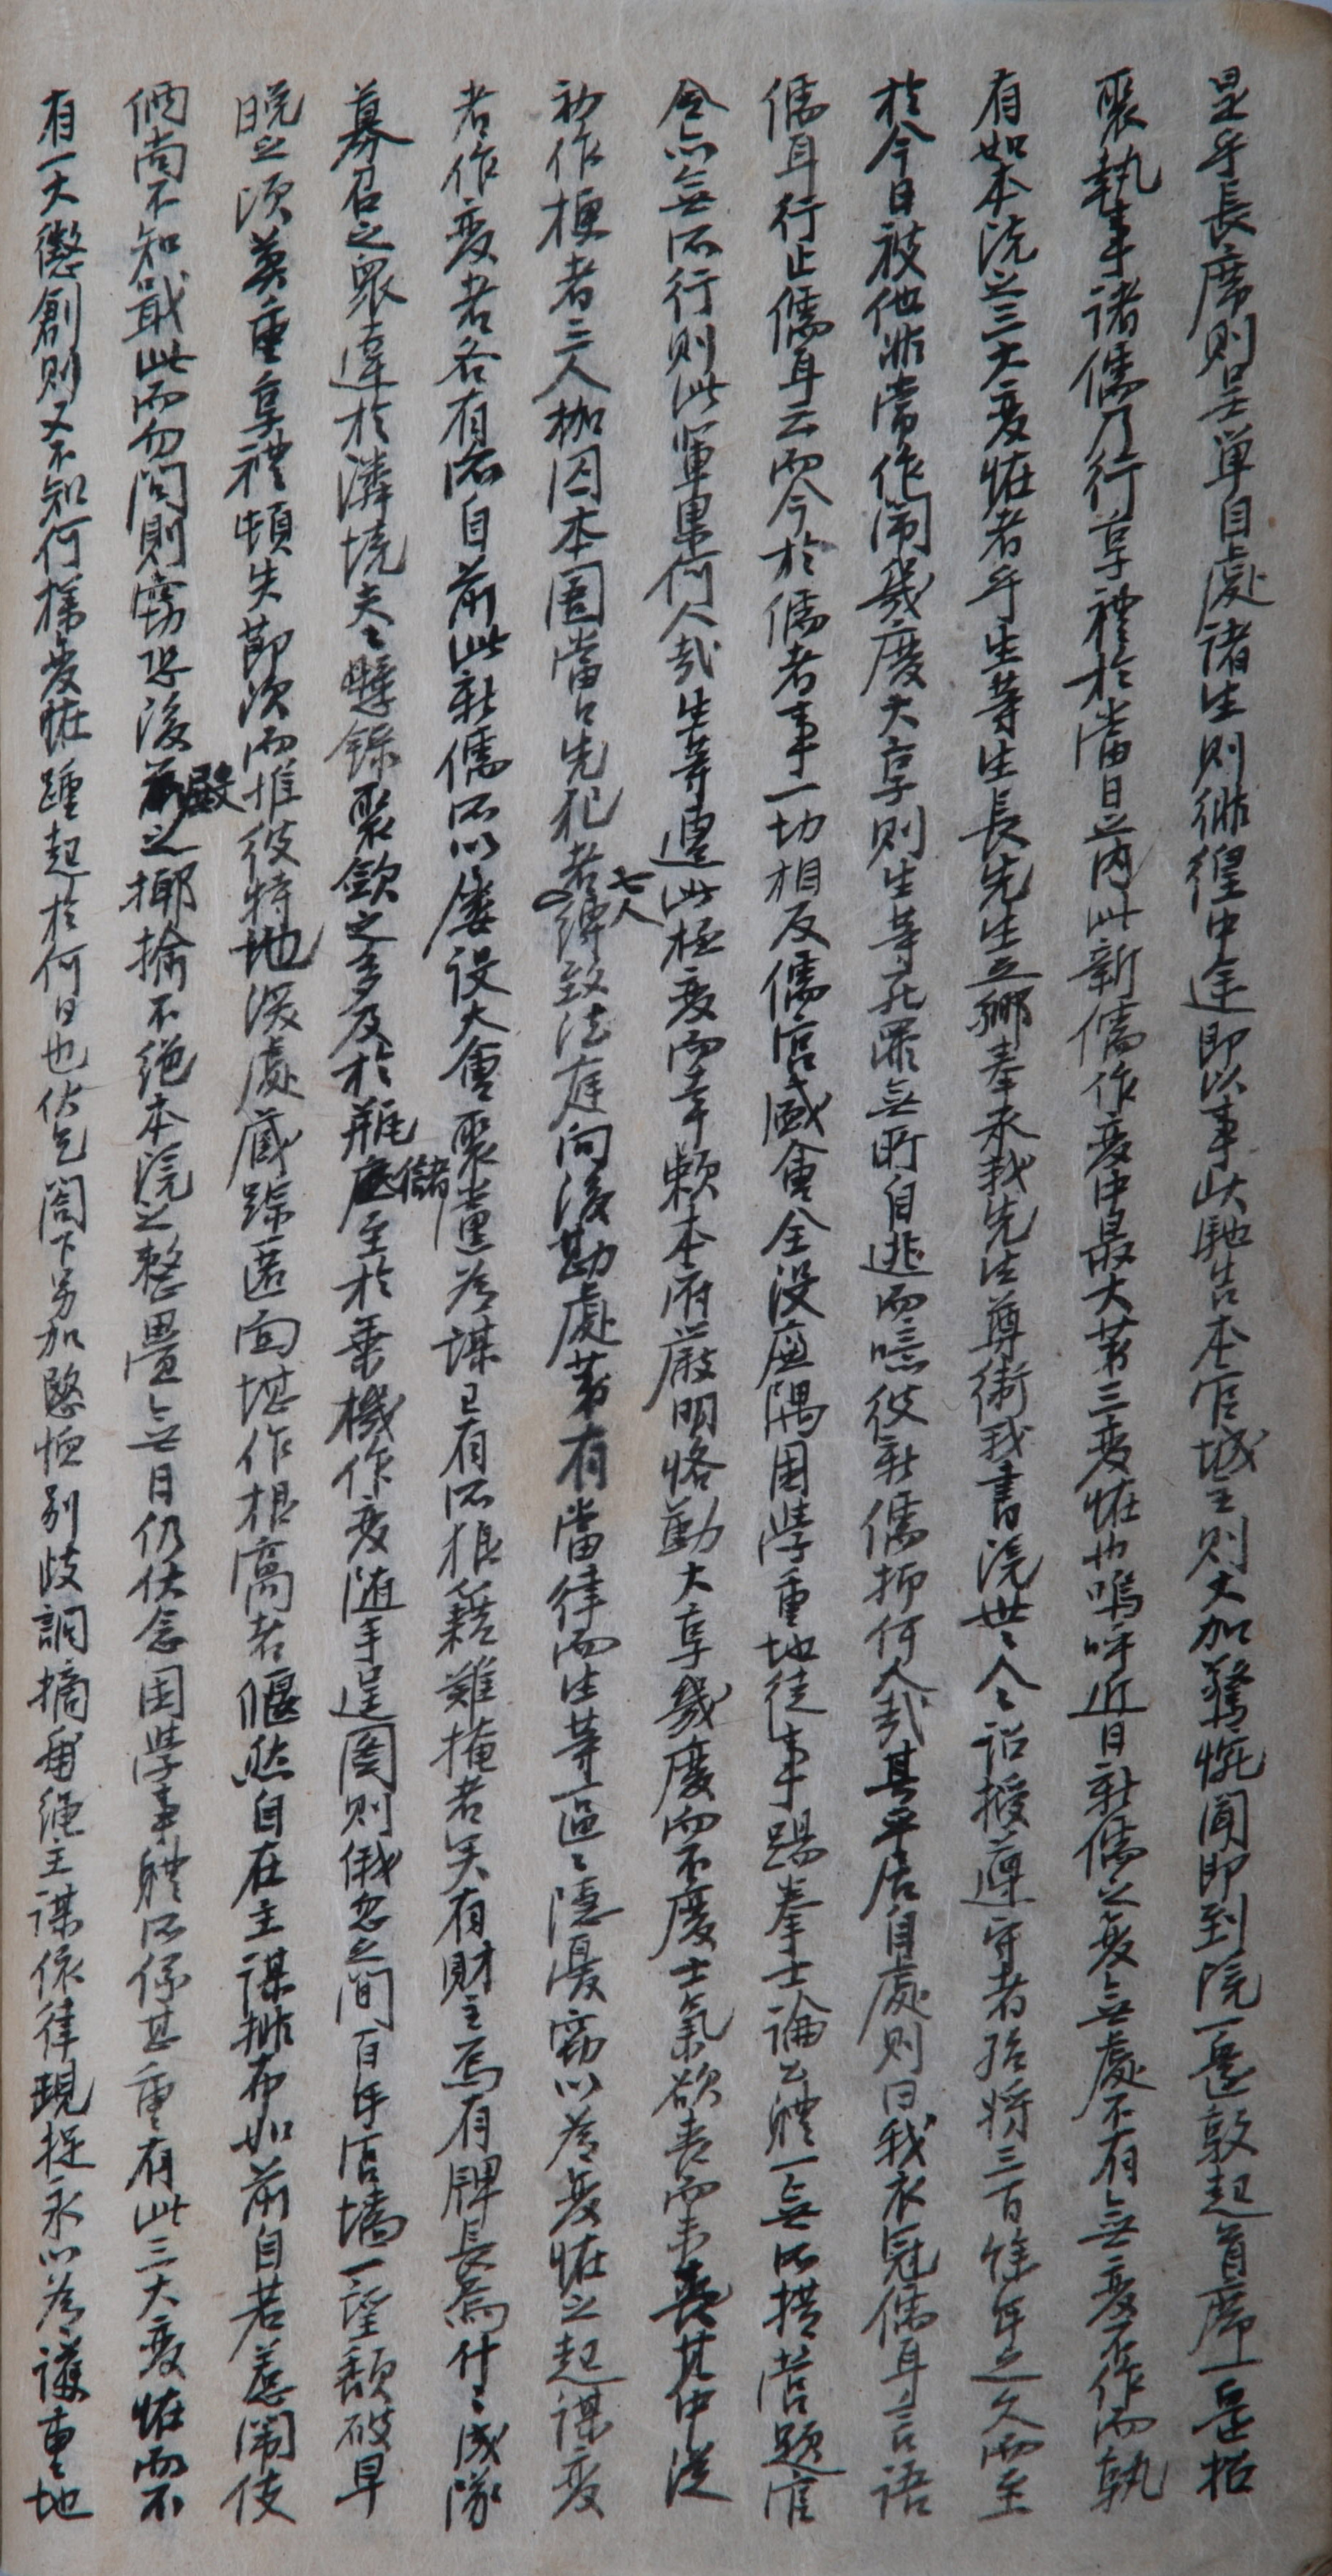 是乎長席則呈單自處諸生則徘徨中途即以事狀馳告本官城主則大加驚惋聞即到院一邊敦起首席一邊招
聚執事諸儒乃行享禮於當日之內此新儒作變中最大第三變恠也嗚呼近日新儒之變無處不有無變不作而孰
有如本院之三大變恠者乎生等生長先生之鄕奉承我先生尊衛我書院世〻人〻詔授遵守者殆將三百餘年之久而至
於今日被他非常作鬧幾廢大享則生等死罪無所自逃而噫彼新儒抑何人哉其平居自處則曰我衣冠儒耳言語
儒耳行止儒耳云而今於儒者事一切相反儒宮盛會全沒廉隅國學重地徒事踢拳士論公體一無所措營題官
令亦無所行則此輩果何人哉生等遭此極變而幸賴本府嚴明恪勤大享幾廢而不廢士氣欲喪而未喪其中從
初作梗者三人枷囚本圄當日先犯者七人縛致法庭向後勘處第有當律而生等區〻隱憂竊以爲變恠之起謀變
者作變者各有名自前此新儒所以屢設大會聚黨爲謀已有所狼藉難掩者矣有財主焉有牌長焉什〻成隊
募召之衆違於隣境夫〻懸錄聚斂之多及於甁儲至於乘機作變隨手逞圖則俄忽之間百年宮墻一望頹破早
晩之須莫重享禮頓失節次而推彼特地深處藏踪匿面堪作根窩者偃然自在主謀排布如前自若惹鬧伎
倆尚不知戢此而勿問則竊恐後殿之揶揄不絶本院之整疊無日仍伏念國學事體所係甚重有此三大變恠而不
有一大懲創則又不知何樣變恠踵起於何日也伏乞閤下另加愍恤別歧詗摘用繩主謀依律現捉永以爲護重地